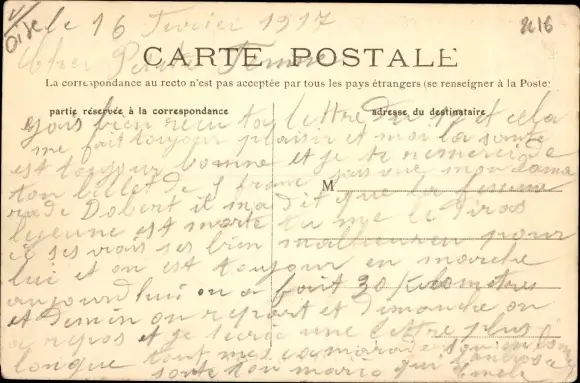 Oise
le 16 Fevrier 1917
2616
Cher Petite Femme
CARTE POSTALE
La correspondance au recto n'est pas acceptée par tous les pays étrangers (se renseigner à la Poste)
partie réservée à la correspondance
adresse du destinataire
M
jais bien recu ta lettre Du 12 et cela
me fait toujour plaisir et moi la sante
est toujour bonne et je te remerci de
ton billet de 5 franc jais vue mon cama
rade Dobert il ma dit que la femme
lejeune est morte tu me le diras
ce ses vrais ses bien malheureu pour
lui et on est toujour en marche
aujourdhui on a fait 30 Kilometres
et Demin on repart et Dimanche on
a repos et je tecrie une lettre plus
longue tout mes camarade
ton mario qui t'aime